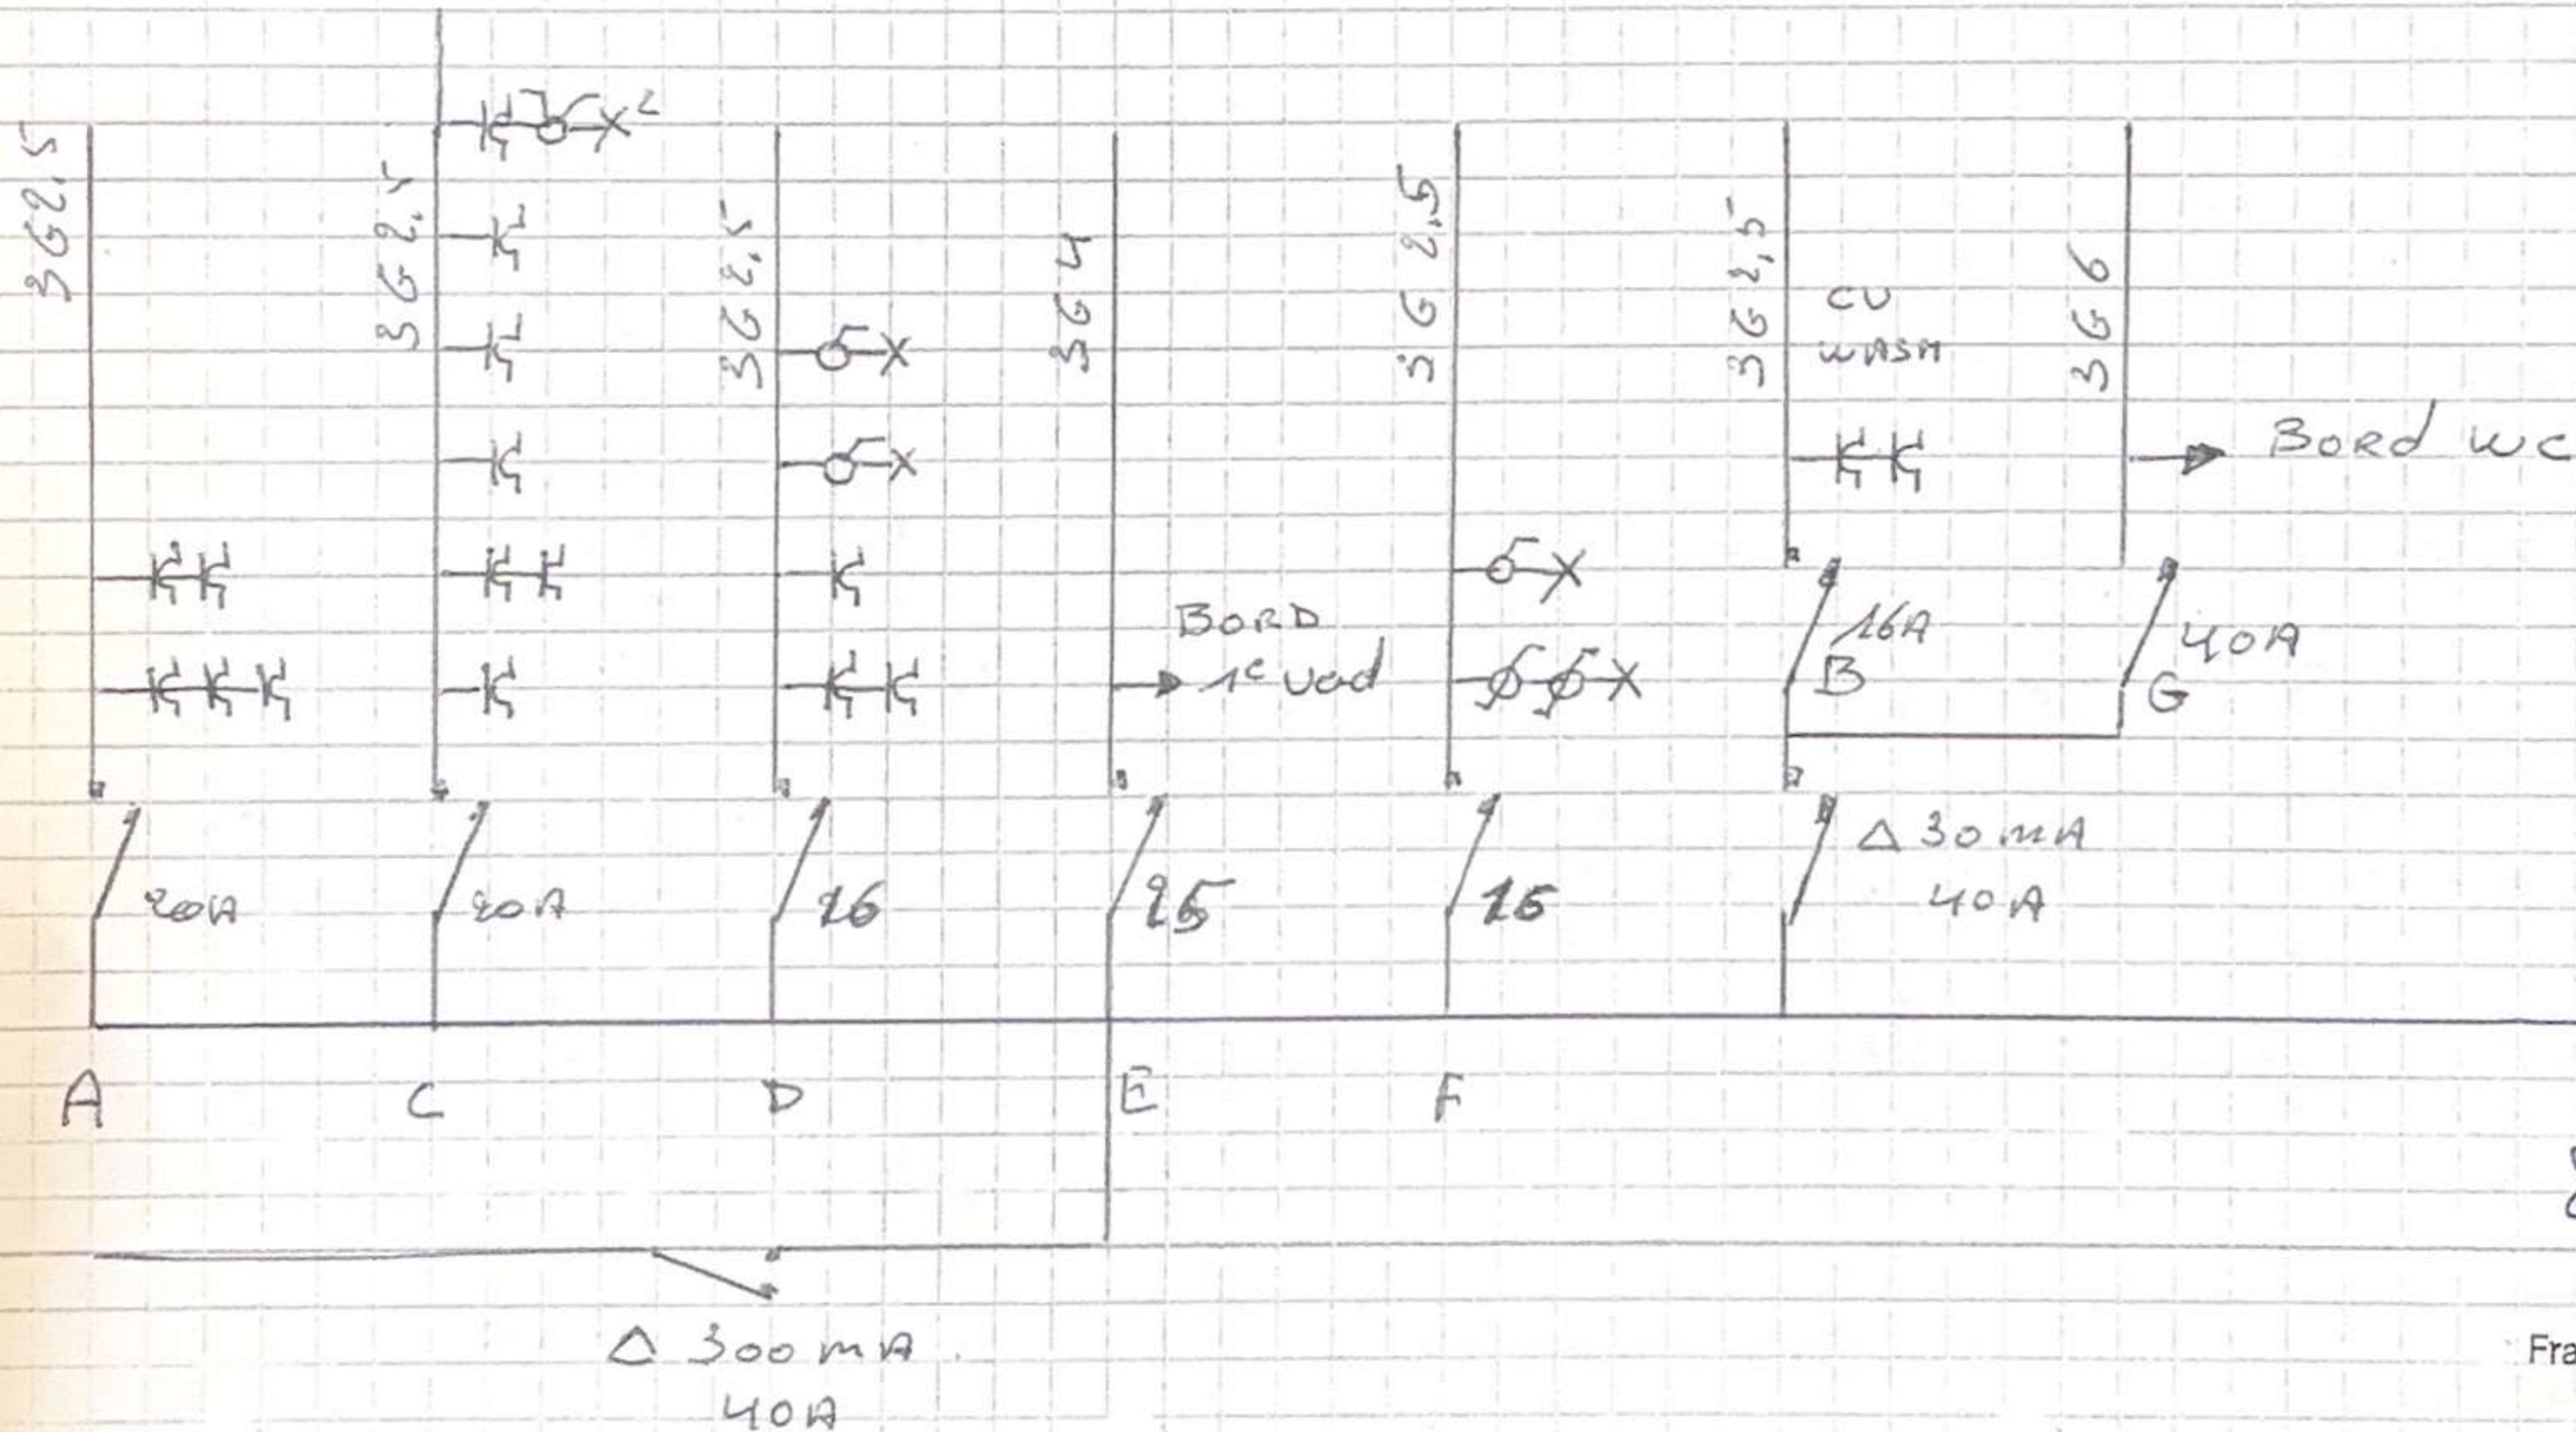 2
3G2.5
3G2.5
3G2.5
3G4
3G2.5
3G2,5
3G6
CU
WASM
BORd WC
BORD
1e Ved
16A
B
40A
G
20A
20A
16
25
Δ 30mA
40A
A
C
D
E
F
Δ 300mA
40A
Fra